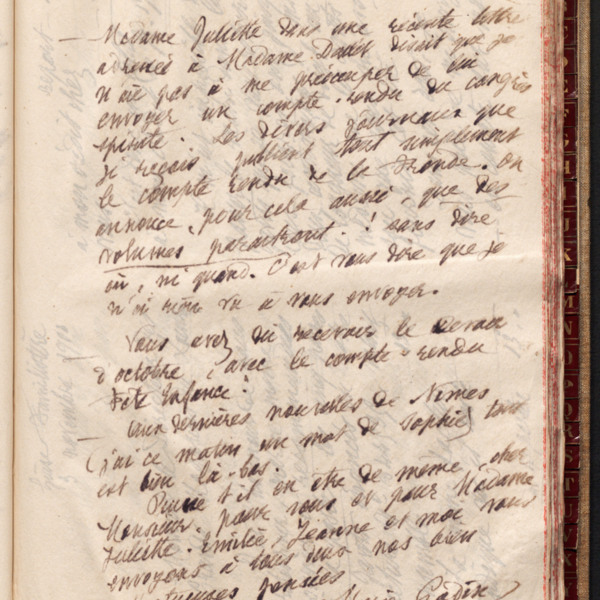 — Madame Juliette dans une récente lettre
adressée à Madame Dallet disait que je
n'aie pas à me préoccuper de lui
envoyer un compte-rendu du congrès
spirite. Les divers journaux que
je reçois publient tout simplement
le compte rendu de la Fronde. On
annonce, pour cela aussi, que des
volumes paraîtront ! sans dire
où, ni quand. C'est vous dire que je
n'ai rien vu à vous envoyer.
— Vous avez dû recevoir le Devoir
d'octobre, avec le compte-rendu
Fête Enfance !
— Aux dernières nouvelles de Nîmes
(j'ai ce matin un mot de Sophie) tout
est bien là-bas.
Puisse-t-il en être de même, cher
Monsieur, pour vous et pour Madame
Juliette. Emilie, Jeanne et moi vous
envoyons à tous deux nos bien
affectueuses pensées
Marie Godin
E
F
G
H
I
J
K
M
N
O
P
Q
R
S
T
U
V
X